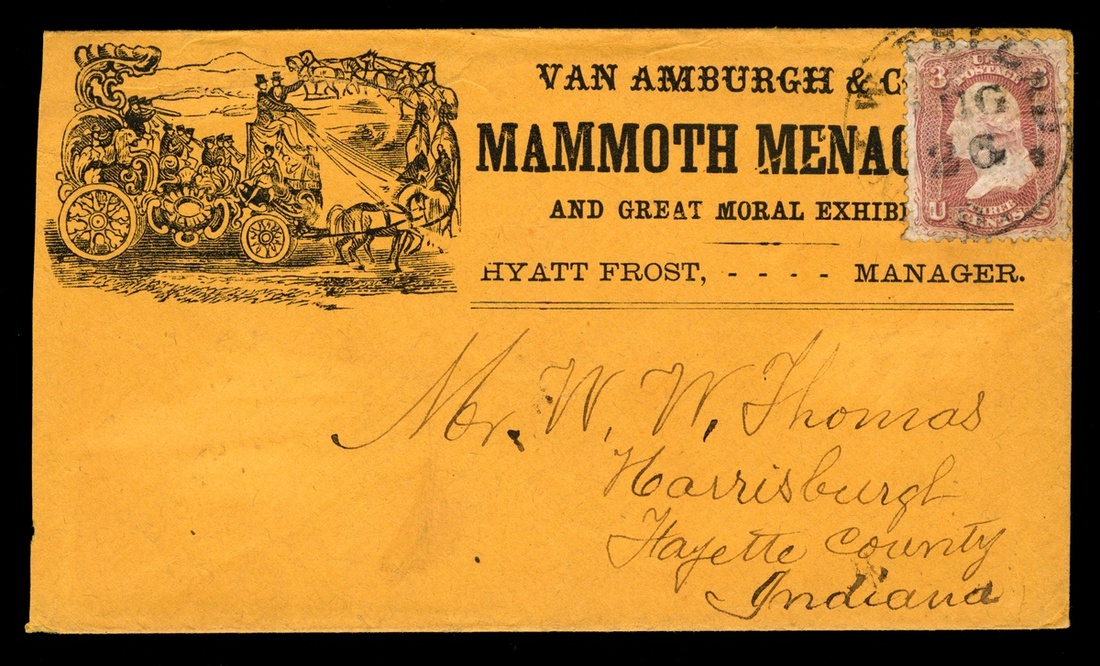 VAN AMBURGH & C
MAMMOTH MENAG
AND GREAT MORAL EXHIBI
HYATT FROST, - - - - MANAGER.
3 3
U.S.
POSTAGE
U S
CENTS
Mr. W. W. Thomas
Harrisburgh
Fayette County
Indiana